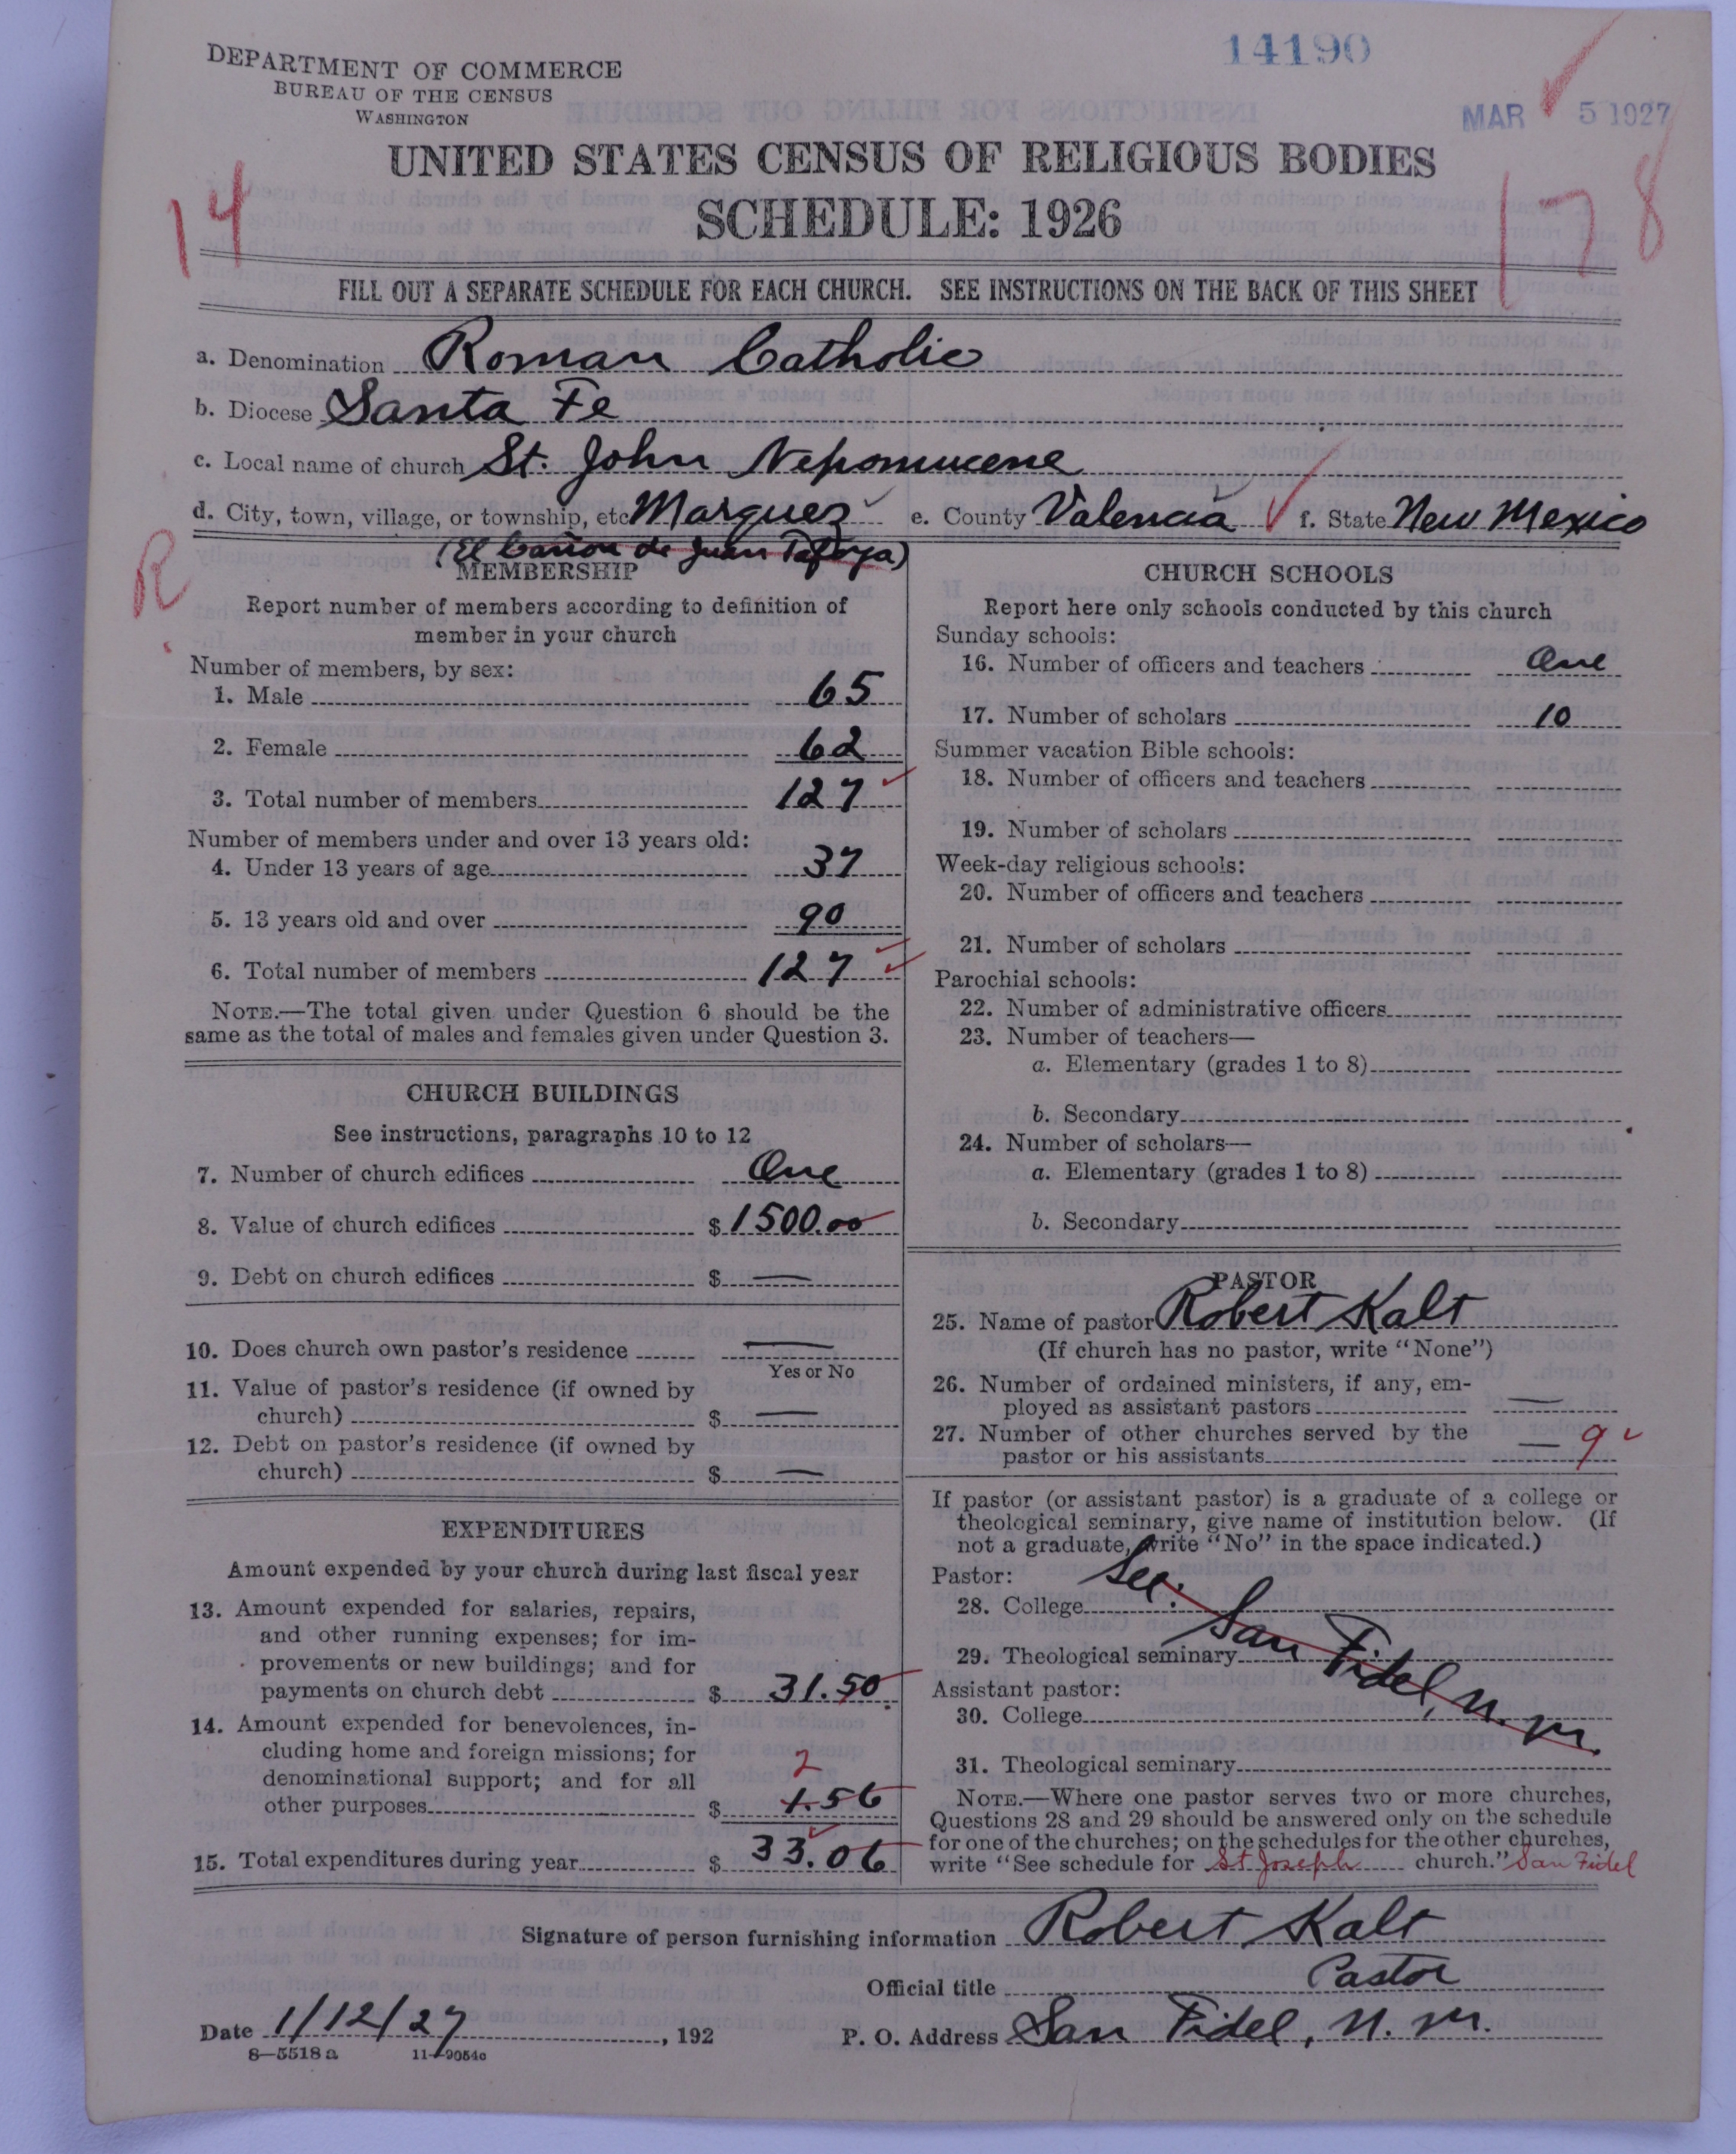 14190
DEPARTMENT OF COMMERCE
BUREAU OF THE CENSUS
WASHINGTON
MAR 5 1927
UNITED STATES CENSUS OF RELIGIOUS BODIES
SCHEDULE: 1926
14
178
FILL OUT A SEPARATE SCHEDULE FOR EACH CHURCH. SEE INSTRUCTIONS ON THE BACK OF THIS SHEET
a. Denomination Roman Catholic
b. Diocese Santa Fe
c. Local name of church St. John Nepomucene
d. City, town, village, or township, etc Marquez e. County Valencia f. State New Mexico
(El Cañon de Juan Tafoya)
R
MEMBERSHIP
Report number of members according to definition of
member in your church
Number of members, by sex:
1. Male 65
2. Female 62
3. Total number of members 127
Number of members under and over 13 years old:
4. Under 13 years of age 37
5. 13 years old and over 90
6. Total number of members 127
NOTE.—The total given under Question 6 should be the
same as the total of males and females given under Question 3.
CHURCH BUILDINGS
See instructions, paragraphs 10 to 12
7. Number of church edifices One
8. Value of church edifices $ 1500.00
9. Debt on church edifices $ —
10. Does church own pastor's residence —
Yes or No
11. Value of pastor's residence (if owned by
church) $ —
12. Debt on pastor's residence (if owned by
church) $ —
EXPENDITURES
Amount expended by your church during last fiscal year
13. Amount expended for salaries, repairs,
and other running expenses; for im-
provements or new buildings; and for
payments on church debt $ 31.50
14. Amount expended for benevolences, in-
cluding home and foreign missions; for
denominational support; and for all
2
other purposes $ 1.56
15. Total expenditures during year $ 33.06
CHURCH SCHOOLS
Report here only schools conducted by this church
Sunday schools:
16. Number of officers and teachers One
17. Number of scholars 10
Summer vacation Bible schools:
18. Number of officers and teachers
19. Number of scholars
Week-day religious schools:
20. Number of officers and teachers
21. Number of scholars
Parochial schools:
22. Number of administrative officers
23. Number of teachers—
a. Elementary (grades 1 to 8)
b. Secondary
24. Number of scholars—
a. Elementary (grades 1 to 8)
b. Secondary
PASTOR
25. Name of pastor Robert Kalt
(If church has no pastor, write "None")
26. Number of ordained ministers, if any, em-
ployed as assistant pastors —
27. Number of other churches served by the
pastor or his assistants — 9
If pastor (or assistant pastor) is a graduate of a college or
theological seminary, give name of institution below. (If
not a graduate, write "No" in the space indicated.)
Pastor: See:
28. College
San Fidel, N. M.
29. Theological seminary
Assistant pastor:
30. College
31. Theological seminary
NOTE.—Where one pastor serves two or more churches,
Questions 28 and 29 should be answered only on the schedule
for one of the churches; on the schedules for the other churches,
write "See schedule for St Joseph church." San Fidel
Signature of person furnishing information Robert Kalt
Official title Pastor
Date 1/12/27, 192 P. O. Address San Fidel, N. M.
8—5518 a 11—9054c